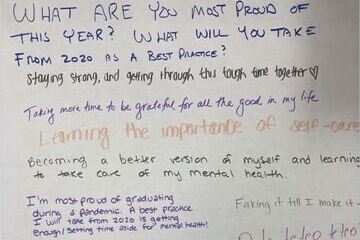 WHAT ARE YOU MOST PROUD OF
THIS YEAR? WHAT WILL YOU TAKE
FROM 2020 AS A BEST PRACTICE?
staying strong, and getting through this tough time together♡
Taking more time to be grateful for all the good in my life
Learning the importance of self-care
Becoming a better version of myself and learning
to take care of my mental health.
I'm most proud of graduating
during a pandemic. A best practice
I will take from 2020 is getting
enough/setting time aside for mental health!
Faking it till I make it